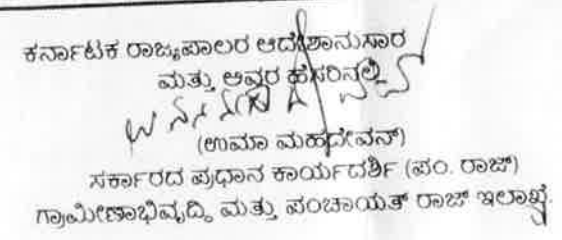 ಕರ್ನಾಟಕ ರಾಜ್ಯಪಾಲರ ಆದೇಶಾನುಸಾರ
ಮತ್ತು ಅವರ ಹೆಸರಿನಲ್ಲಿ
(ಉಮಾ ಮಹದೇವನ್)
ಸರ್ಕಾರದ ಪ್ರಧಾನ ಕಾರ್ಯದರ್ಶಿ (ಪಂ. ರಾಜ್)
ಗ್ರಾಮೀಣಾಭಿವೃದ್ಧಿ ಮತ್ತು ಪಂಚಾಯತ್ ರಾಜ್ ಇಲಾಖೆ.